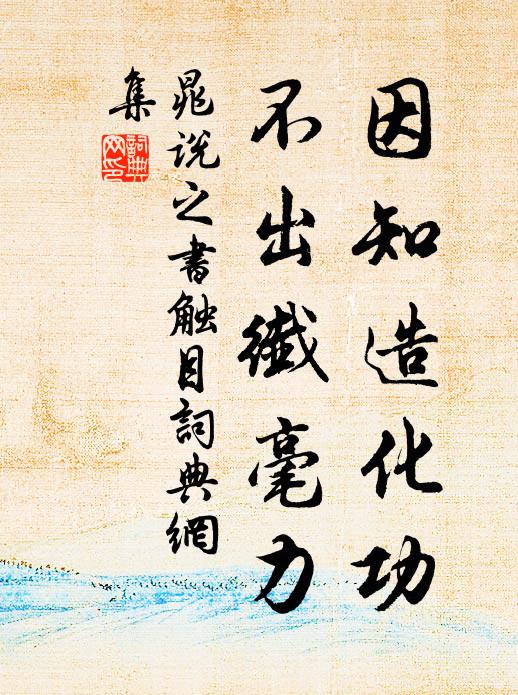 因知造化功
不出纖毫力
晁说之書觸目詞典網
集
詞典
网印